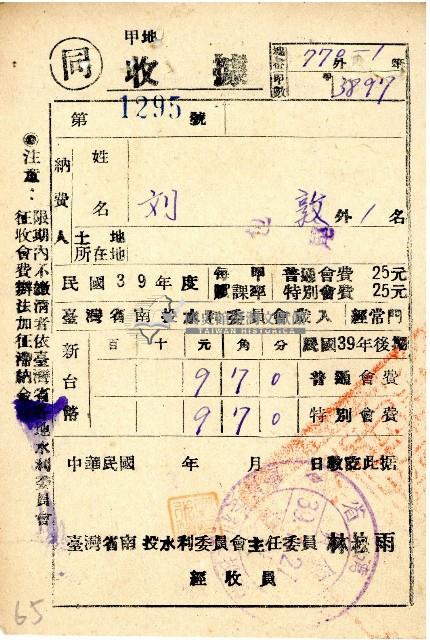 甲地
同
收 據
地番 770-1 外 筆
甲數 3897
第 1295 號
納費人
姓名 刘 敦 外 1 名
土地所在地
民國39年度
每甲賦課率
普通會費 25元
特別會費 25元
臺灣省南投水利委員會收入
經常門
新台幣
百 十 元 角 分
民國39年後期
9 7 0 普通會費
9 7 0 特別會費
中華民國 年 月 日數訖此据
臺灣省南投水利委員會主任委員 林松雨
經收員
◎注意：限期內不繳清者依臺灣省各地水利委員會
征收會費辦法加征滯納金
TAIWAN HISTORICA
65